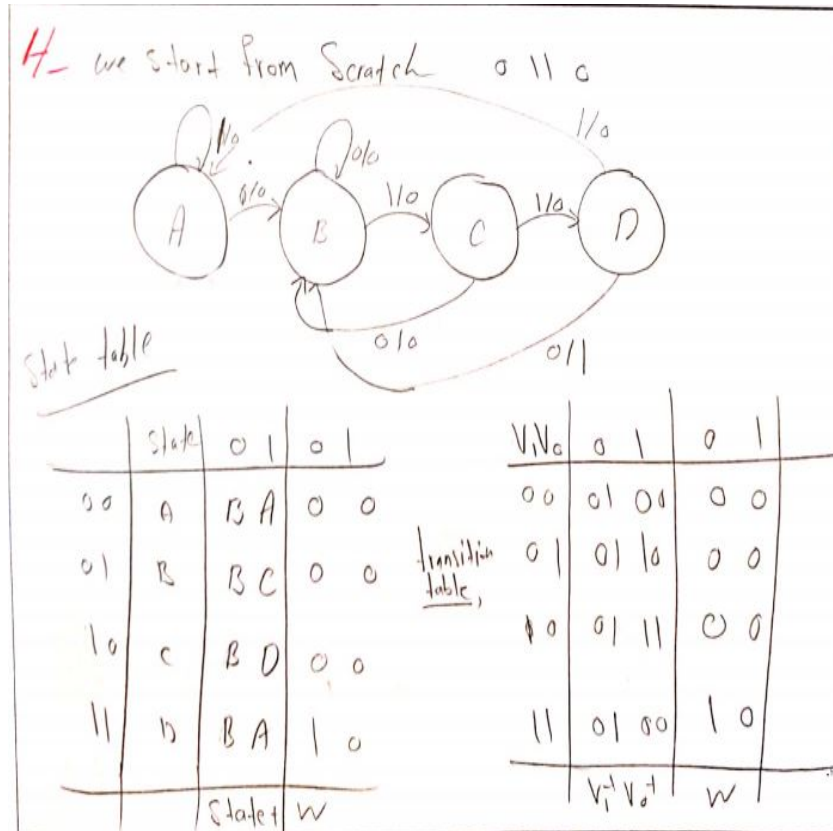 H- we start from Scratch 0 11 0
1/0
1/0 0/0
0/0 1/0 1/0
A B C D
0/0 0/1
State table
State 0 1 0 1
00 A B A 0 0
01 B B C 0 0
10 C B D 0 0
11 D B A 1 0
State+ W
transition
table,
V1V0 0 1 0 1
00 01 00 0 0
01 01 10 0 0
10 01 11 0 0
11 01 00 1 0
V1+ V0+ W